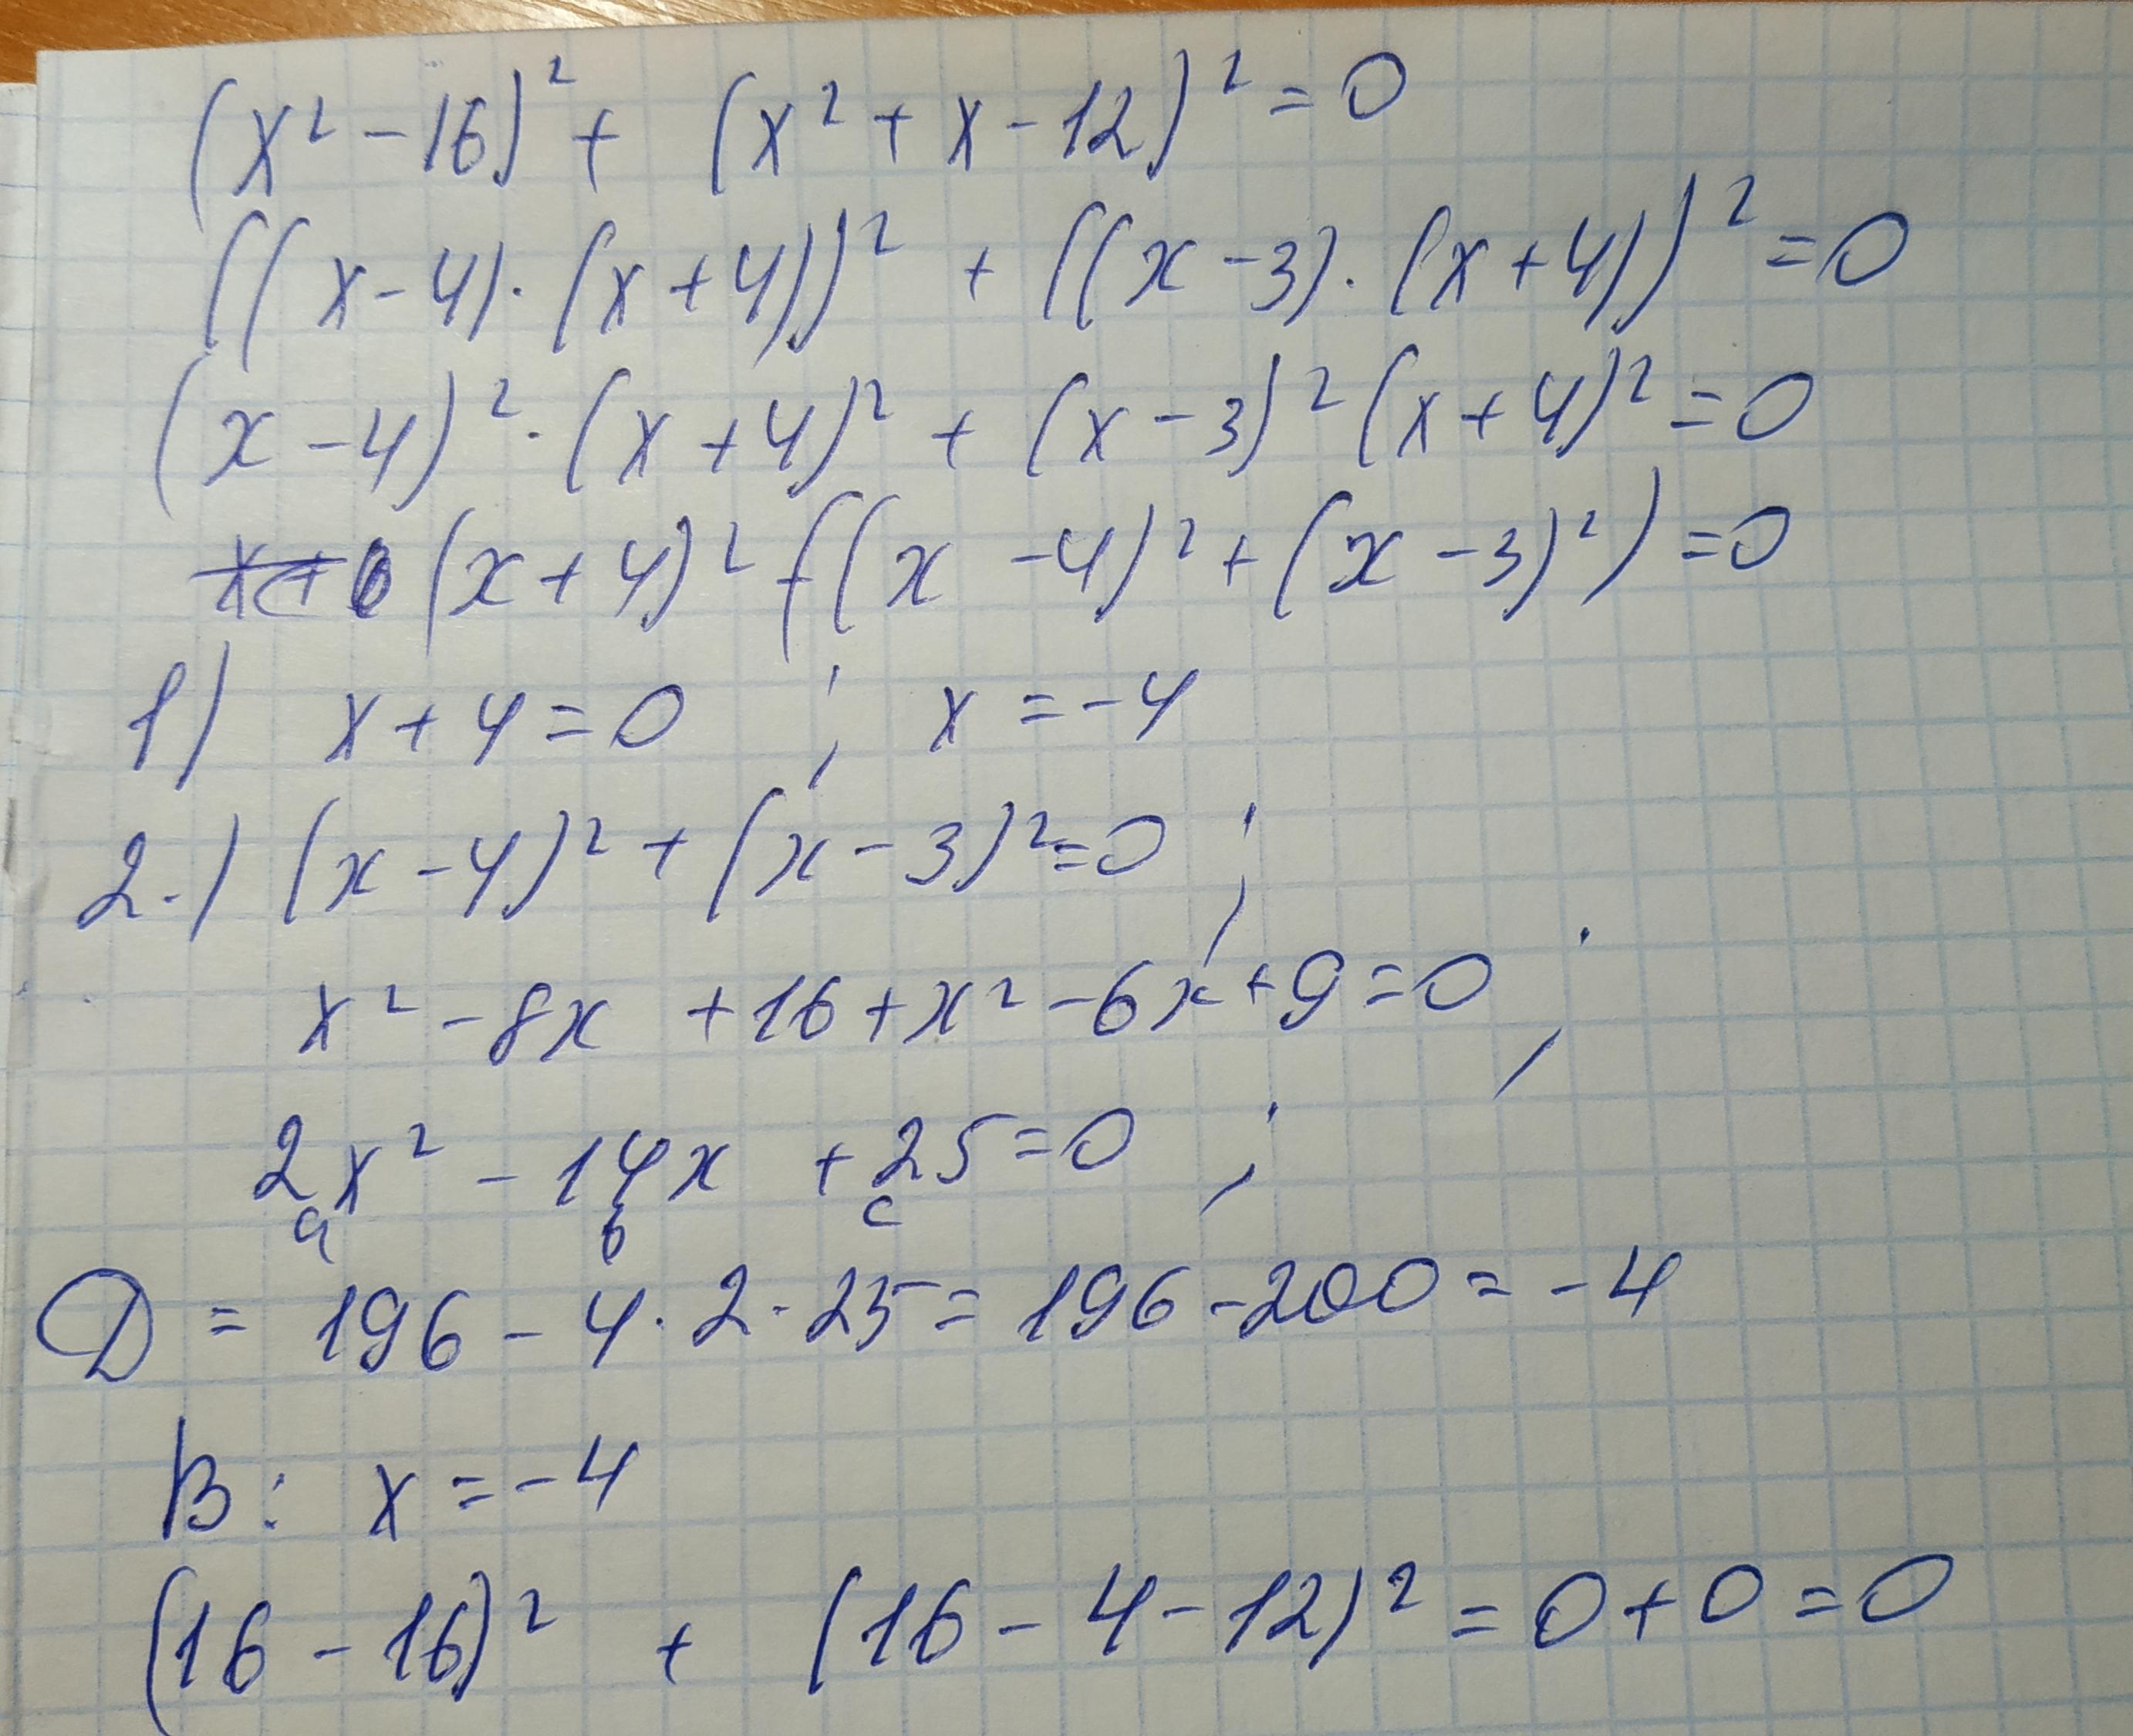 (x² - 16)² + (x² + x - 12)² = 0
((x - 4) · (x + 4))² + ((x - 3) · (x + 4))² = 0
(x - 4)² · (x + 4)² + (x - 3)² (x + 4)² = 0
(x + 4)² ((x - 4)² + (x - 3)²) = 0
1) x + 4 = 0 ; x = -4
2.) (x - 4)² + (x - 3)² = 0 ;
x² - 8x + 16 + x² - 6x + 9 = 0 ;
2x² - 14x + 25 = 0 ;
a b c
D = 196 - 4 · 2 · 25 = 196 - 200 = -4
В: x = -4
(16 - 16)² + (16 - 4 - 12)² = 0 + 0 = 0